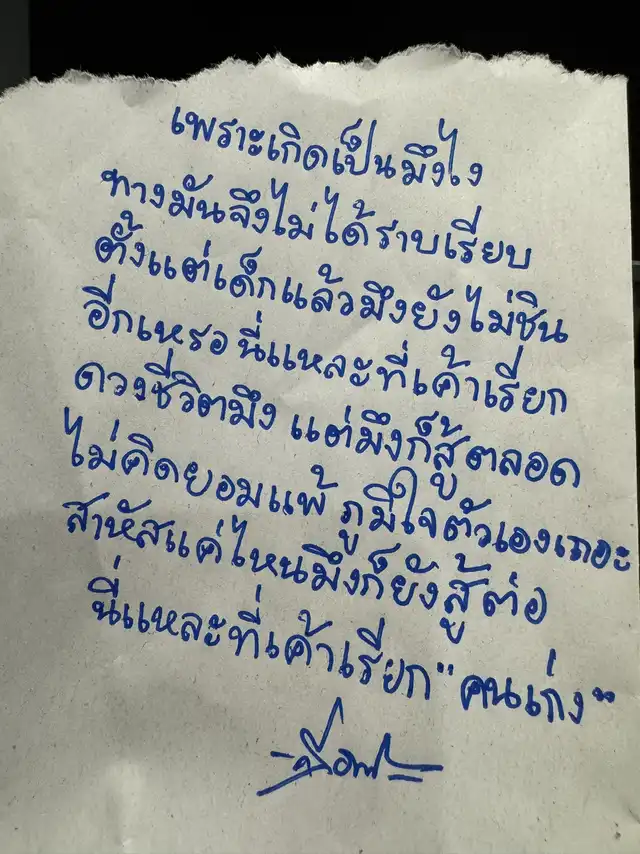 เพราะเกิดเป็นมึงไง
ทางมันจึงไม่ได้ราบเรียบ
ตั้งแต่เด็กแล้วมึงยังไม่ชิน
อีกเหรอ นี่แหละที่เค้าเรียก
ดวงชีวิตมึง แต่มึงก็สู้ตลอด
ไม่คิดยอมแพ้ ภูมิใจตัวเองเถอะ
สาหัสแค่ไหนมึงก็ยังสู้ต่อ
นี่แหละที่เค้าเรียก "คนเก่ง"